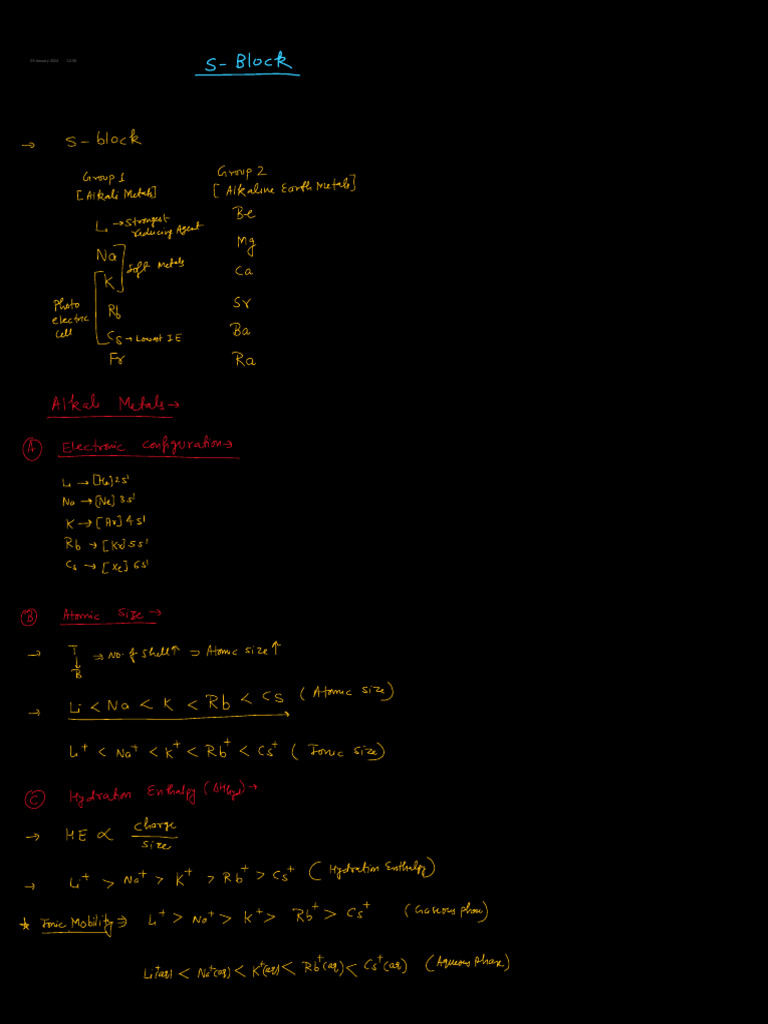 23 January 2024 12:06
S-Block
→ S-block
Group 1
[Alkali Metals]
Group 2
[Alkaline Earth Metals]
Li → Strongest reducing Agent
Na
K
Soft Metals
Rb
Cs → Lowest IE
Fr
Photo
electric
cell
Be
Mg
Ca
Sr
Ba
Ra
Alkali Metals →
(A) Electronic configuration →
Li → [He] 2s¹
Na → [Ne] 3s¹
K → [Ar] 4s¹
Rb → [Kr] 5s¹
Cs → [Xe] 6s¹
(B) Atomic Size →
→ T ↓ B ⇒ No. of shell ↑ ⇒ Atomic size ↑
→ Li < Na < K < Rb < Cs (Atomic size)
Li⁺ < Na⁺ < K⁺ < Rb⁺ < Cs⁺ (Ionic size)
(C) Hydration Enthalpy (ΔHhyd) →
→ HE ∝ charge / size
→ Li⁺ > Na⁺ > K⁺ > Rb⁺ > Cs⁺ (Hydration Enthalpy)
★ Ionic Mobility ⇒ Li⁺ > Na⁺ > K⁺ > Rb⁺ > Cs⁺ (Gaseous phase)
Li⁺(aq) < Na⁺(aq) < K⁺(aq) < Rb⁺(aq) < Cs⁺(aq) (Aqueous Phase)